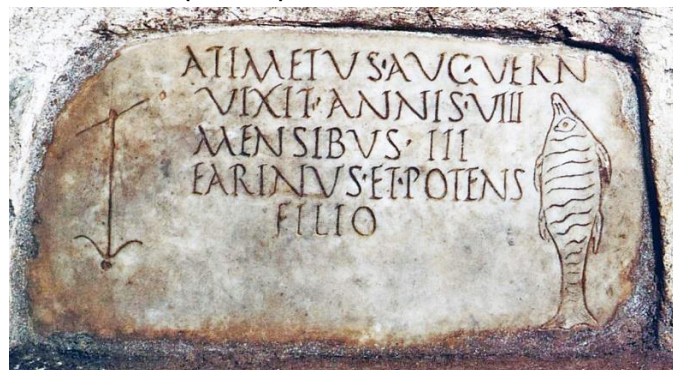 ATIMETVS·AVG·VERN
VIXIT·ANNIS·VIII
MENSIBVS·III
EARINVS·ET·POTENS
FILIO